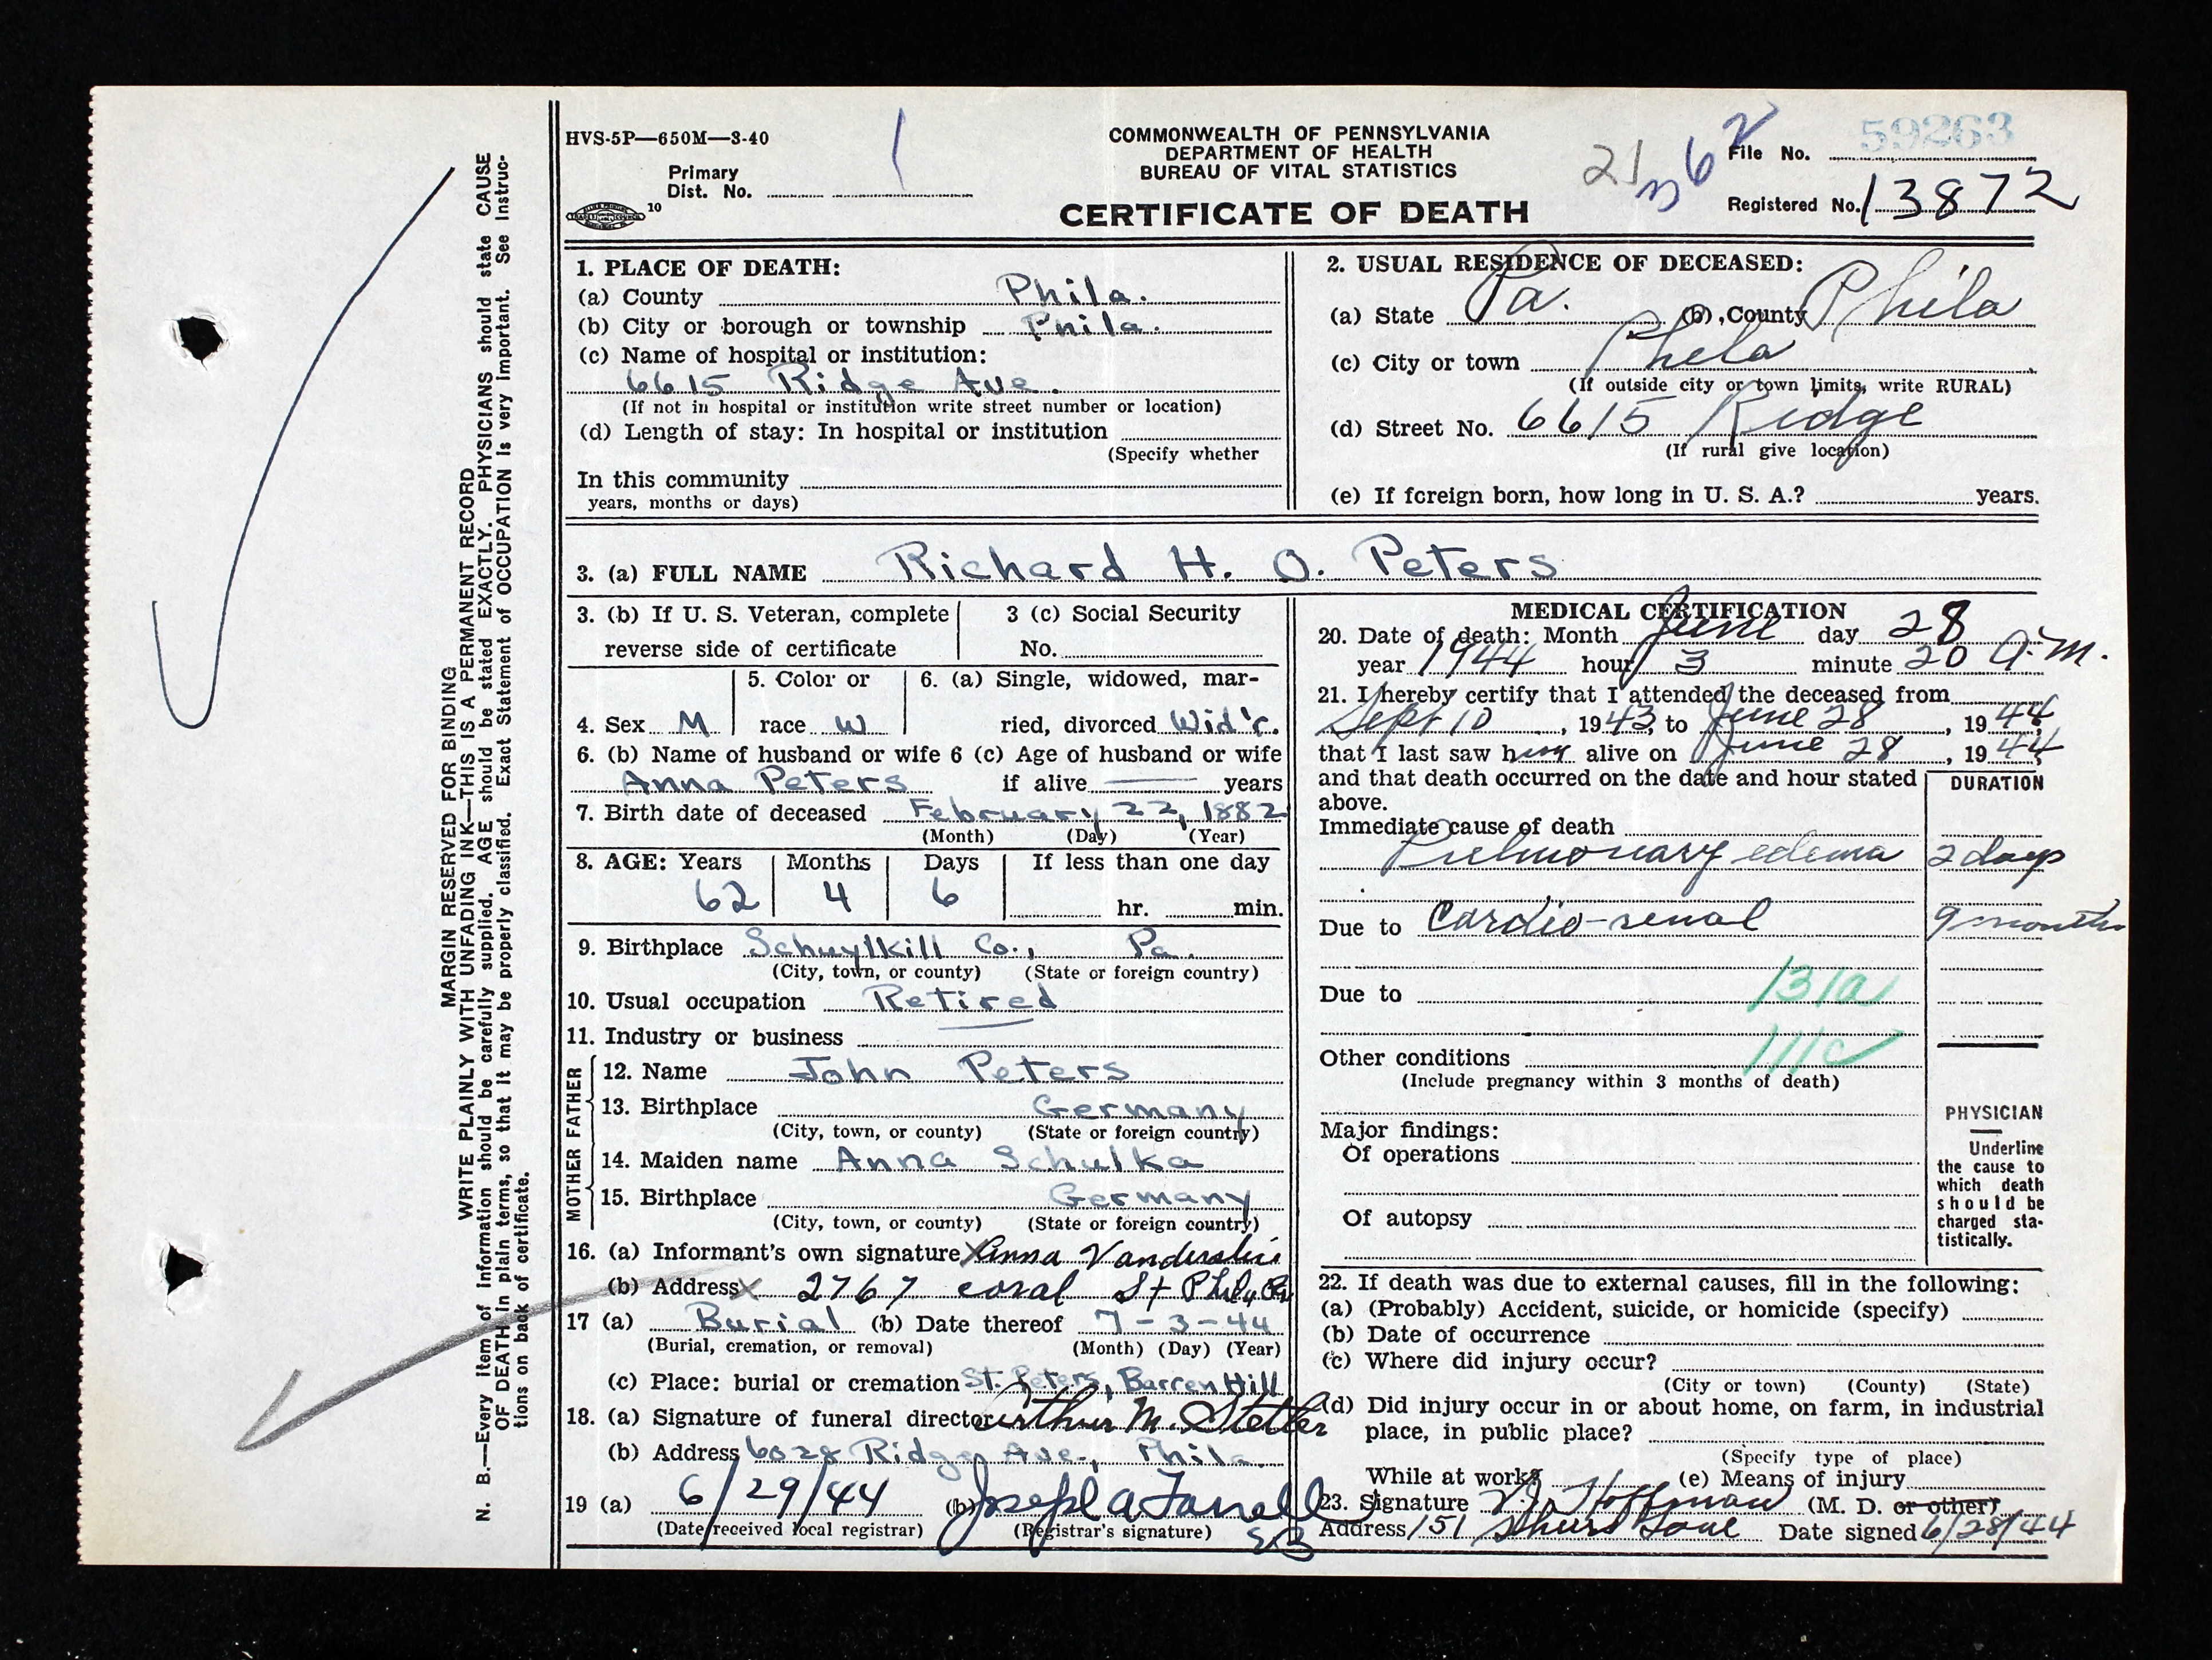 HVS-5P—650M—3-40
Primary
Dist. No.
10
COMMONWEALTH OF PENNSYLVANIA
DEPARTMENT OF HEALTH
BUREAU OF VITAL STATISTICS
CERTIFICATE OF DEATH
21 3 62
File No. 59263
Registered No. 13872
MARGIN RESERVED FOR BINDING
WRITE PLAINLY WITH UNFADING INK—THIS IS A PERMANENT RECORD
N. B.—Every item of information should be carefully supplied. AGE should be stated EXACTLY. PHYSICIANS should state CAUSE
OF DEATH in plain terms, so that it may be properly classified. Exact Statement of OCCUPATION is very important. See Instruc-
tions on back of certificate.
1. PLACE OF DEATH:
(a) County Phila.
(b) City or borough or township Phila.
(c) Name of hospital or institution:
6615 Ridge Ave.
(If not in hospital or institution write street number or location)
(d) Length of stay: In hospital or institution
(Specify whether
In this community
years, months or days)
2. USUAL RESIDENCE OF DECEASED:
(a) State Pa. (b) County Phila
(c) City or town Phila
(If outside city or town limits, write RURAL)
(d) Street No. 6615 Ridge
(If rural give location)
(e) If foreign born, how long in U. S. A.? years.
3. (a) FULL NAME Richard H. O. Peters
3. (b) If U. S. Veteran, complete
reverse side of certificate
3 (c) Social Security
No.
4. Sex M
5. Color or
race W
6. (a) Single, widowed, mar-
ried, divorced Wid'r.
6. (b) Name of husband or wife 6 (c) Age of husband or wife
Anna Peters if alive — years
7. Birth date of deceased February 22, 1882
(Month) (Day) (Year)
8. AGE: Years Months Days If less than one day
62 4 6 hr. min.
9. Birthplace Schuylkill Co., Pa.
(City, town, or county) (State or foreign country)
10. Usual occupation Retired
11. Industry or business
FATHER
12. Name John Peters
13. Birthplace Germany
(City, town, or county) (State or foreign country)
MOTHER
14. Maiden name Anna Schulka
15. Birthplace Germany
(City, town, or county) (State or foreign country)
16. (a) Informant's own signature X Anna
(b) Address X 2767 coral St Phila Pa
17 (a) Burial (b) Date thereof 7-3-44
(Burial, cremation, or removal) (Month) (Day) (Year)
(c) Place: burial or cremation St. Peters, Barren Hill
18. (a) Signature of funeral director Arthur M. Stetler
(b) Address 6028 Ridge Ave., Phila.
19 (a) 6/29/44 (b) Joseph A Farrell
(Date received local registrar) (Registrar's signature)
MEDICAL CERTIFICATION
20. Date of death: Month June day 28
year 1944 hour 3 minute 20 A.M.
21. I hereby certify that I attended the deceased from
Sept 10, 1943, to June 28, 1944,
that I last saw him alive on June 28, 1944
and that death occurred on the date and hour stated
above.
DURATION
Immediate cause of death
Pulmonary edema 2 days
Due to Cardio-renal 9 months
Due to 131a
111c
Other conditions
(Include pregnancy within 3 months of death)
Major findings:
Of operations
Of autopsy
PHYSICIAN
Underline
the cause to
which death
should be
charged sta-
tistically.
22. If death was due to external causes, fill in the following:
(a) (Probably) Accident, suicide, or homicide (specify)
(b) Date of occurrence
(c) Where did injury occur?
(City or town) (County) (State)
(d) Did injury occur in or about home, on farm, in industrial
place, in public place?
(Specify type of place)
While at work? (e) Means of injury
23. Signature Hoffman (M. D. or other)
Address 151 Shurs Lane Date signed 6/28/44